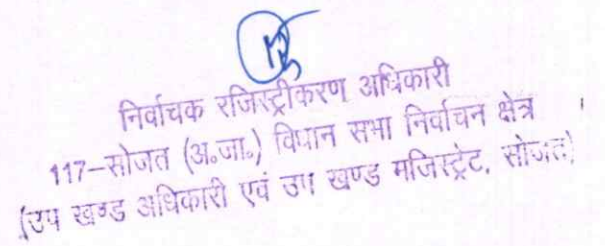 निर्वाचक रजिस्ट्रीकरण अधिकारी
117–सोजत (अ०जा०) विधान सभा निर्वाचन क्षेत्र
(उप खण्ड अधिकारी एवं उप खण्ड मजिस्ट्रेट, सोजत)